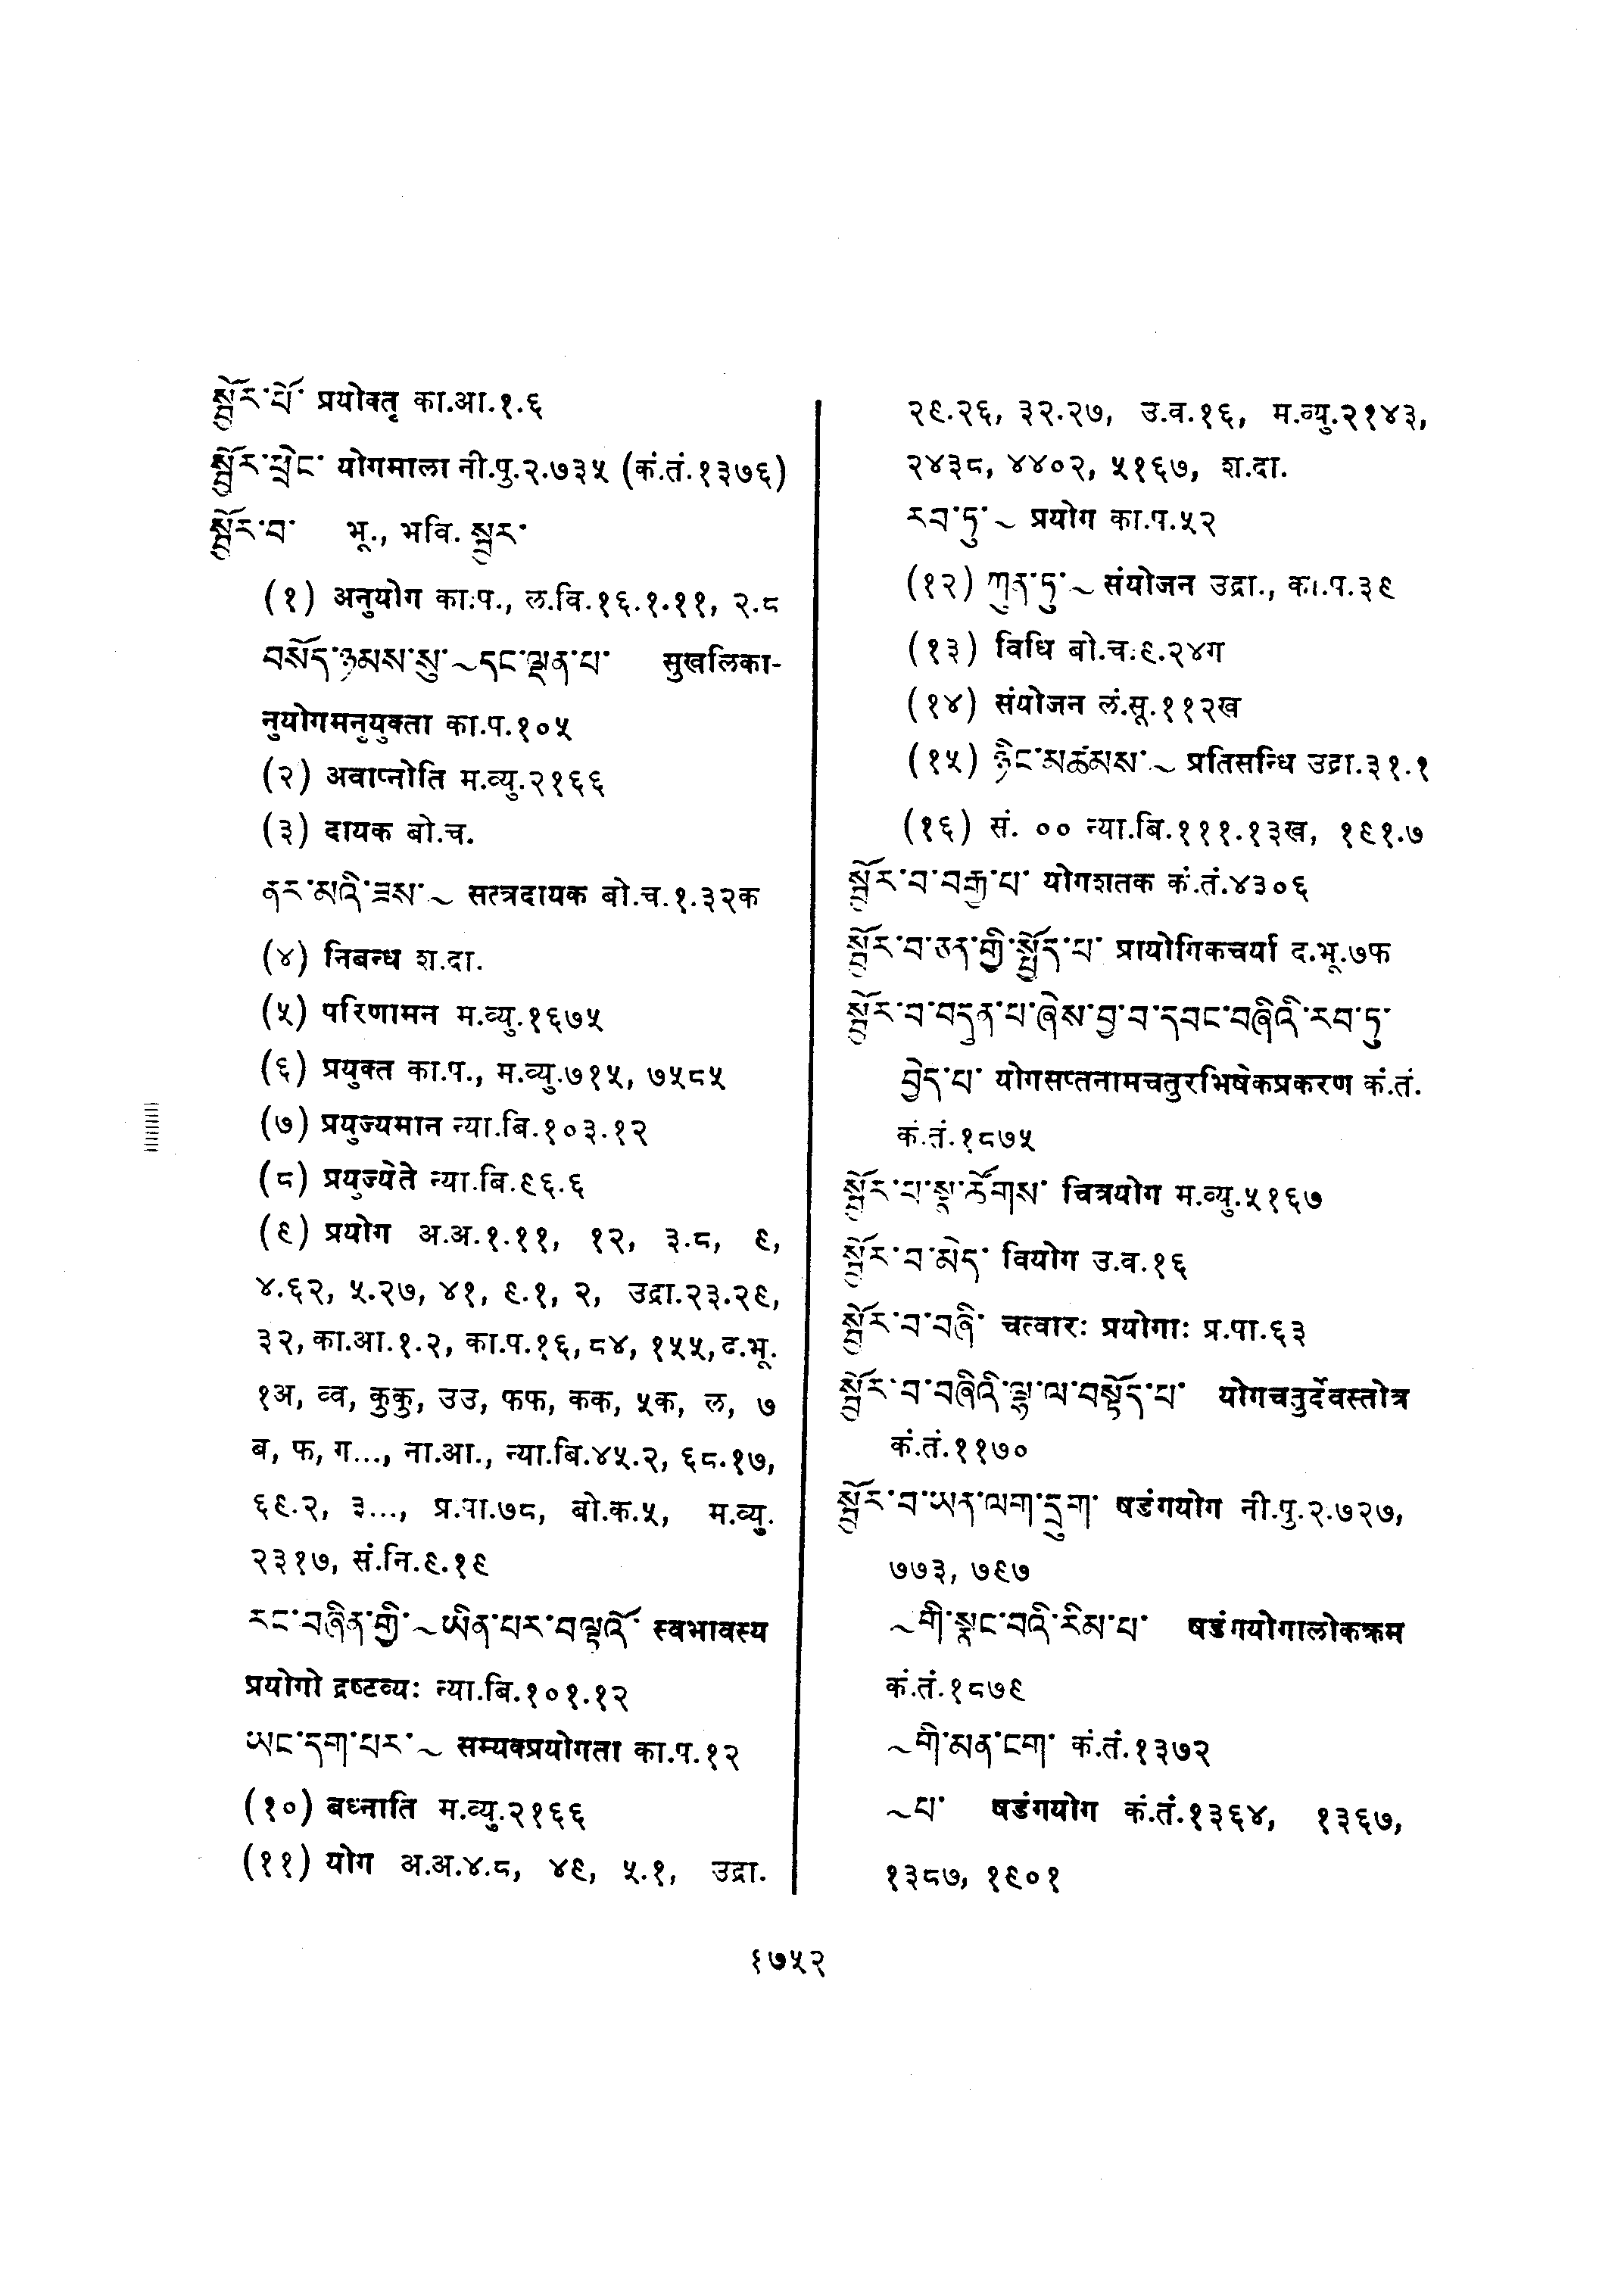 སྦྱོར་པོ་ प्रयोक्तृ का.आ.१.६
སྦྱོར་ཕྲེང་ योगमाला नी.पु.२.७३५ (कं.तं.१३७६)
སྦྱོར་བ་ भू., भवि. སྦྱར་
(१) अनुयोग का.प., ल.वि.१६.१.११, २.८
བསོད་ཉམས་སུ་~དང་ལྡན་པ་ सुखलिका-
नुयोगमनुयुक्ता का.प.१०५
(२) अवाप्नोति म.व्यु.२१६६
(३) दायक बो.च.
ནར་མའི་ཟས་~ सत्त्रदायक बो.च.१.३२क
(४) निबन्ध श.दा.
(५) परिणामन म.व्यु.१६७५
(६) प्रयुक्त का.प., म.व्यु.७१५, ७५८५
(७) प्रयुज्यमान न्या.बि.१०३.१२
(८) प्रयुज्येते न्या.बि.९६.६
(९) प्रयोग अ.अ.१.११, १२, ३.८, ९,
४.६२, ५.२७, ४१, ९.१, २, उद्रा.२३.२९,
३२, का.आ.१.२, का.प.१६, ८४, १५५, द.भू.
१अ, व्व, कुकु, उउ, फफ, कक, ५क, ल, ७
ब, फ, ग..., ना.आ., न्या.बि.४५.२, ६८.१७,
६९.२, ३..., प्र.पा.७८, बो.क.५, म.व्यु.
२३१७, सं.नि.९.१९
རང་བཞིན་གྱི་~ཡིན་པར་བལྟའོ་ स्वभावस्य
प्रयोगो द्रष्टव्यः न्या.बि.१०१.१२
ཡང་དག་པར་~ सम्यक्प्रयोगता का.प.१२
(१०) बध्नाति म.व्यु.२१६६
(११) योग अ.अ.४.८, ४९, ५.१, उद्रा.
२९.२६, ३२.२७, उ.व.१६, म.व्यु.२१४३,
२४३८, ४४०२, ५१६७, श.दा.
རབ་ཏུ་~ प्रयोग का.प.५२
(१२) ཀུན་ཏུ་~ संयोजन उद्रा., का.प.३९
(१३) विधि बो.च.९.२४ग
(१४) संयोजन लं.सू.११२ख
(१५) ཉིང་མཚམས་~ प्रतिसन्धि उद्रा.३१.१
(१६) सं. ०० न्या.बि.१११.१३ख, १९१.७
སྦྱོར་བ་བརྒྱ་པ་ योगशतक कं.तं.४३०६
སྦྱོར་བ་ཅན་གྱི་སྤྱོད་པ་ प्रायोगिकचर्या द.भू.७फ
སྦྱོར་བ་བདུན་པ་ཞེས་བྱ་བ་དབང་བཞིའི་རབ་ཏུ་
བྱེད་པ་ योगसप्तनामचतुरभिषेकप्रकरण कं.तं.
कं.तं.१८७५
སྦྱོར་བ་སྣ་ཚོགས་ चित्रयोग म.व्यु.५१६७
སྦྱོར་བ་མེད་ वियोग उ.व.१६
སྦྱོར་བ་བཞི་ चत्वारः प्रयोगाः प्र.पा.६३
སྦྱོར་བ་བཞིའི་ལྷ་ལ་བསྟོད་པ་ योगचतुर्देवस्तोत्र
कं.तं.११७०
སྦྱོར་བ་ཡན་ལག་དྲུག་ षडंगयोग नी.पु.२.७२७,
७७३, ७९७
~གི་སྣང་བའི་རིམ་པ་ षडंगयोगालोकक्रम
कं.तं.१८७९
~གི་མན་ངག་ कं.तं.१३७२
~པ་ षडंगयोग कं.तं.१३६४, १३६७,
१३८७, १९०१
१७५२